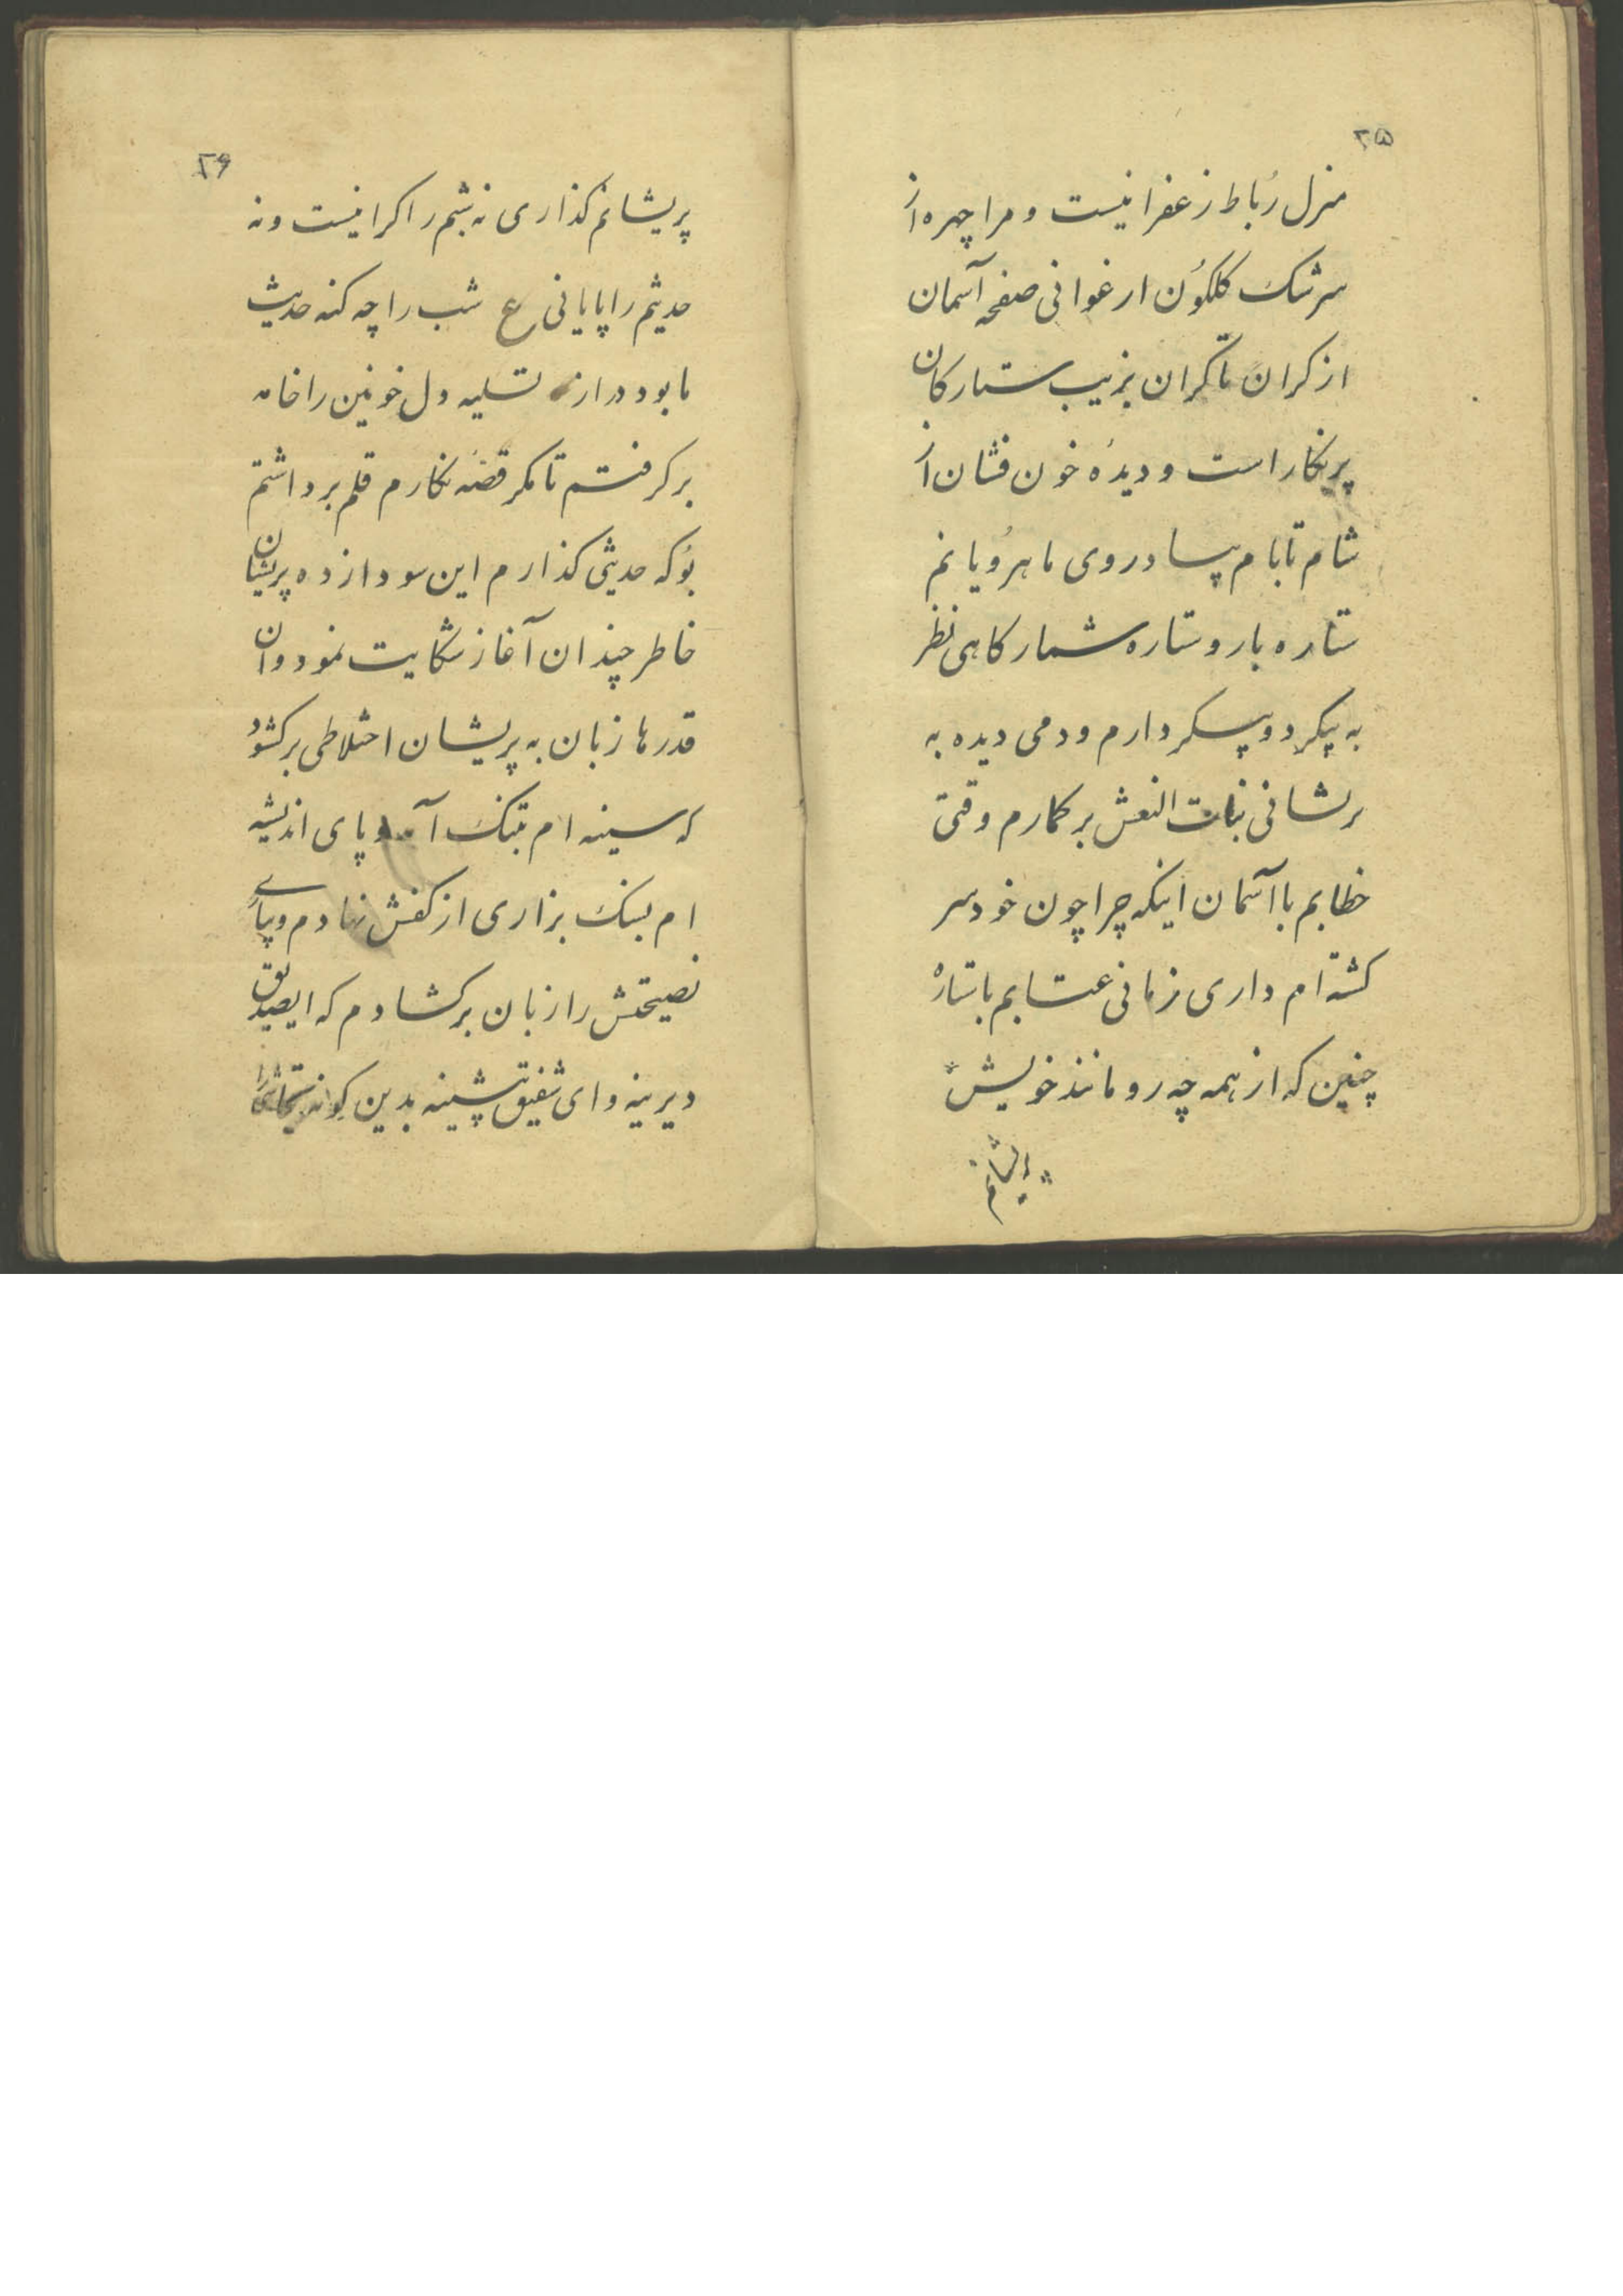 ۲۵
منزل رُباط زعفرانیست و مرا چهره از
سرشک کلکوُن ارغوانی صفحه آسمان
از کران تا کران بزیب ستارکان
پرنکار است و دیدهٔ خون فشان از
شام تا بام بیاد روی ماهرُویانم
ستاره بار و ستاره شمار کاهی نظر
به پیکر دو پیکر دارم و دمی دیده به
پریشانی بنات النعش بر کمارم وقتی
خطابم با آسمان اینکه چرا چون خود سر
کشته ام داری زمانی عتابم با ستارهٔ
چنین که از همه چه رو مانند خویش
پریشانم
۲۶
پریشانم کذاری نه شبم را کرانیست و نه
حدیثم را پایانی ع شب را چه کنه حدیث
ما بود دراز تسلیه دل خونین را خامه
برکرفتم تا مکر قصهٔ نکارم قلم برداشتم
بوُ که حدیثی کذارم این سودازده پریشان
خاطر چندان آغاز شکایت نمود و آن
قدرها زبان به پریشان اختلاطی برکشود
که سینه ام بتنک آمد و پای اندیشه
ام بسنک بزاری از کفش نهادم و بپای
نصیحتش را زبان برکشادم که ایصدیق
دیرینه و ای شفیق پیشینه بدین کونه